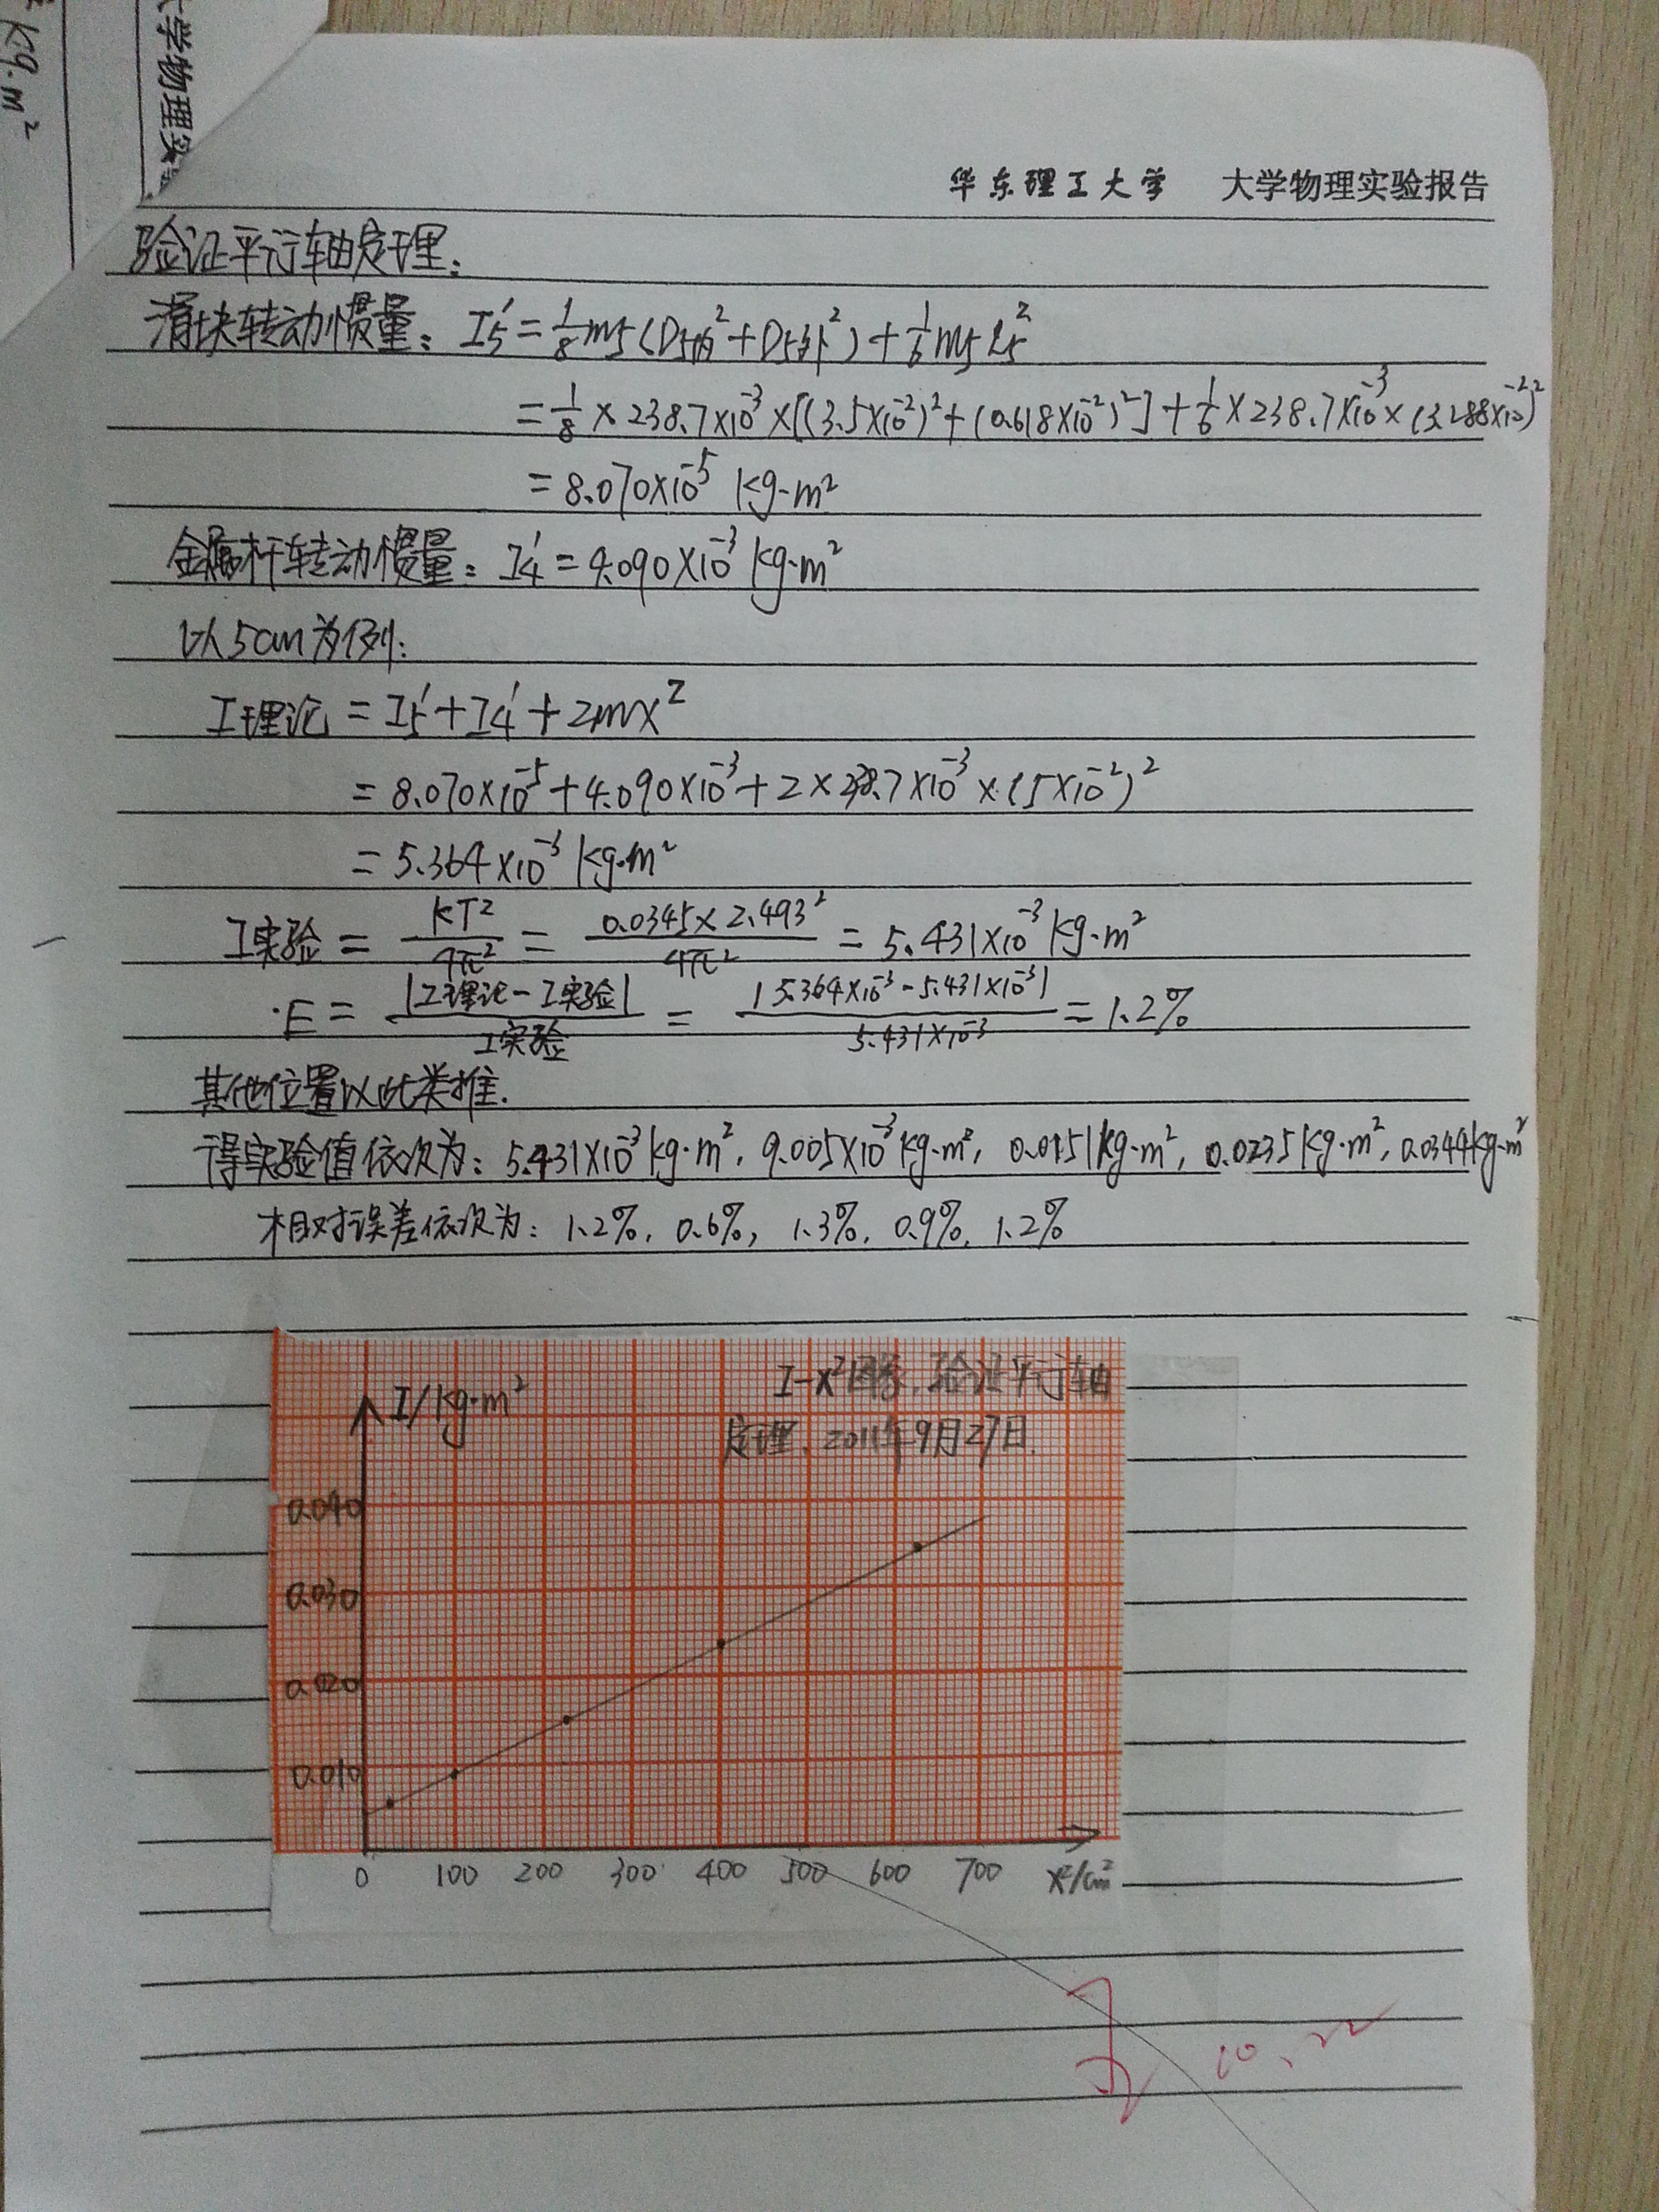 kg·m²
大学物理实
华东理工大学 大学物理实验报告
验证平行轴定理:
滑块转动惯量: I5' = 1/8 m5 (D5内² + D5外²) + 1/6 m5 L5²
= 1/8 × 238.7×10⁻³ × [(3.5×10⁻²)² + (0.618×10⁻²)²] + 1/6 × 238.7×10⁻³ × (3.288×10⁻²)²
= 8.070×10⁻⁵ kg·m²
金属杆转动惯量: I4' = 4.090×10⁻³ kg·m²
以5cm为例:
I理论 = I5' + I4' + 2mx²
= 8.070×10⁻⁵ + 4.090×10⁻³ + 2×238.7×10⁻³×(5×10⁻²)²
= 5.364×10⁻³ kg·m²
I实验 = KT²/4π² = 0.0345×2.493²/4π² = 5.431×10⁻³ kg·m²
E = |I理论-I实验|/I实验 = |5.364×10⁻³-5.431×10⁻³|/5.431×10⁻³ = 1.2%
其他位置以此类推.
得实验值依次为: 5.431×10⁻³kg·m², 9.005×10⁻³kg·m², 0.0151kg·m², 0.0235kg·m², 0.0344kg·m²
相对误差依次为: 1.2%, 0.6%, 1.3%, 0.9%, 1.2%
I-X²图像, 验证平行轴
定理, 2011年9月27日.
I/kg·m²
0.040
0.030
0.020
0.010
0 100 200 300 400 500 600 700 X²/cm²
10.22